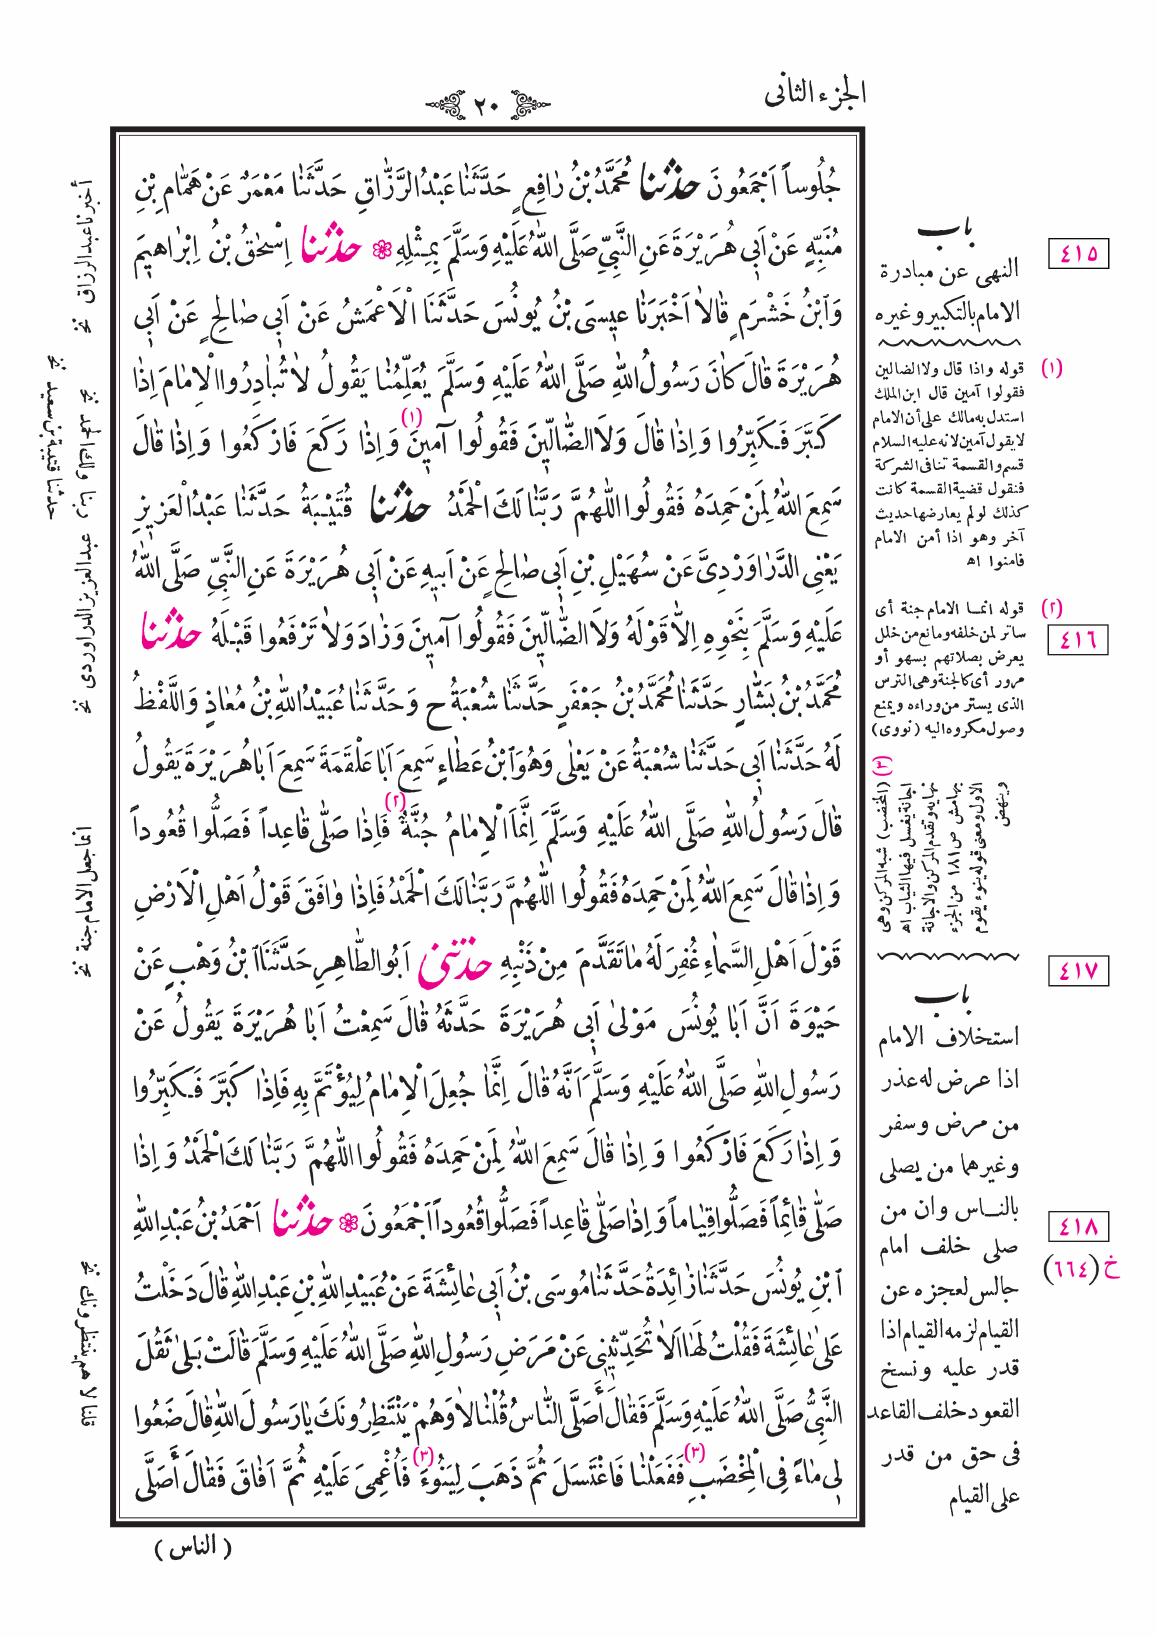 الجزء الثانى
٢٠
جُلُوساً اَجْمَعُونَ حدثنا مُحَمَّدُ بْنُ رَافِعٍ حَدَّثَنَا عَبْدُ الرَّزَّاقِ حَدَّثَنَا مَعْمَرٌ عَنْ هَمَّامِ بْنِ
مُنَبِّهٍ عَنْ اَبِى هُرَيْرَةَ عَنِ النَّبِىِّ صَلَّى اللّٰهُ عَلَيْهِ وَسَلَّمَ بِمِثْلِهِ ❀ حدثنا اِسْحٰقُ بْنُ اِبْرَاهِيمَ
وَابْنُ خَشْرَمٍ قَالاَ اَخْبَرَنَا عِيسَى بْنُ يُونُسَ حَدَّثَنَا الْاَعْمَشُ عَنْ اَبِى صَالِحٍ عَنْ اَبِى
هُرَيْرَةَ قَالَ كَانَ رَسُولُ اللّٰهِ صَلَّى اللّٰهُ عَلَيْهِ وَسَلَّمَ يُعَلِّمُنَا يَقُولُ لاَ تُبَادِرُوا الْاِمَامَ اِذَا
كَبَّرَ فَكَبِّرُوا وَ اِذَا قَالَ وَلاَ الضَّالِّينَ فَقُولُوا آمِينَ (١) وَ اِذَا رَكَعَ فَارْكَعُوا وَ اِذَا قَالَ
سَمِعَ اللّٰهُ لِمَنْ حَمِدَهُ فَقُولُوا اللّٰهُمَّ رَبَّنَا لَكَ الْحَمْدُ حدثنا قُتَيْبَةُ حَدَّثَنَا عَبْدُ الْعَزِيزِ
يَعْنِى الدَّرَاوَرْدِىَّ عَنْ سُهَيْلِ بْنِ اَبِى صَالِحٍ عَنْ اَبِيهِ عَنْ اَبِى هُرَيْرَةَ عَنِ النَّبِىِّ صَلَّى اللّٰهُ
عَلَيْهِ وَسَلَّمَ بِنَحْوِهِ اِلاَّ قَوْلَهُ وَلاَ الضَّالِّينَ فَقُولُوا آمِينَ وَزَادَ وَلاَ تَرْفَعُوا قَبْلَهُ حدثنا
مُحَمَّدُ بْنُ بَشَّارٍ حَدَّثَنَا مُحَمَّدُ بْنُ جَعْفَرٍ حَدَّثَنَا شُعْبَةُ ح وَحَدَّثَنَا عُبَيْدُ اللّٰهِ بْنُ مُعَاذٍ وَاللَّفْظُ
لَهُ حَدَّثَنَا اَبِى حَدَّثَنَا شُعْبَةُ عَنْ يَعْلَى وَهُوَ ابْنُ عَطَاءٍ سَمِعَ اَبَا عَلْقَمَةَ سَمِعَ اَبَا هُرَيْرَةَ يَقُولُ
قَالَ رَسُولُ اللّٰهِ صَلَّى اللّٰهُ عَلَيْهِ وَسَلَّمَ اِنَّمَا الْاِمَامُ جُنَّةٌ (٢) فَاِذَا صَلَّى قَاعِداً فَصَلُّوا قُعُوداً
وَ اِذَا قَالَ سَمِعَ اللّٰهُ لِمَنْ حَمِدَهُ فَقُولُوا اللّٰهُمَّ رَبَّنَا لَكَ الْحَمْدُ فَاِذَا وَافَقَ قَوْلُ اَهْلِ الْاَرْضِ
قَوْلَ اَهْلِ السَّمَاءِ غُفِرَ لَهُ مَا تَقَدَّمَ مِنْ ذَنْبِهِ حدثنى اَبُو الطَّاهِرِ حَدَّثَنَا ابْنُ وَهْبٍ عَنْ
حَيْوَةَ اَنَّ اَبَا يُونُسَ مَوْلَى اَبِى هُرَيْرَةَ حَدَّثَهُ قَالَ سَمِعْتُ اَبَا هُرَيْرَةَ يَقُولُ عَنْ
رَسُولِ اللّٰهِ صَلَّى اللّٰهُ عَلَيْهِ وَسَلَّمَ اَنَّهُ قَالَ اِنَّمَا جُعِلَ الْاِمَامُ لِيُؤْتَمَّ بِهِ فَاِذَا كَبَّرَ فَكَبِّرُوا
وَ اِذَا رَكَعَ فَارْكَعُوا وَ اِذَا قَالَ سَمِعَ اللّٰهُ لِمَنْ حَمِدَهُ فَقُولُوا اللّٰهُمَّ رَبَّنَا لَكَ الْحَمْدُ وَ اِذَا
صَلَّى قَائِماً فَصَلُّوا قِيَاماً وَ اِذَا صَلَّى قَاعِداً فَصَلُّوا قُعُوداً اَجْمَعُونَ ❀ حدثنا اَحْمَدُ بْنُ عَبْدِ اللّٰهِ
ابْنِ يُونُسَ حَدَّثَنَا زَائِدَةُ حَدَّثَنَا مُوسَى بْنُ اَبِى عَائِشَةَ عَنْ عُبَيْدِ اللّٰهِ بْنِ عَبْدِ اللّٰهِ قَالَ دَخَلْتُ
عَلَى عَائِشَةَ فَقُلْتُ لَهَا اَلاَ تُحَدِّثِينِى عَنْ مَرَضِ رَسُولِ اللّٰهِ صَلَّى اللّٰهُ عَلَيْهِ وَسَلَّمَ قَالَتْ بَلَى ثَقُلَ
النَّبِىُّ صَلَّى اللّٰهُ عَلَيْهِ وَسَلَّمَ فَقَالَ أَصَلَّى النَّاسُ قُلْنَا لاَ وَهُمْ يَنْتَظِرُونَكَ يَا رَسُولَ اللّٰهِ قَالَ ضَعُوا
لِى مَاءً فِى الْمِخْضَبِ (٣) فَفَعَلْنَا فَاغْتَسَلَ ثُمَّ ذَهَبَ لِيَنُوءَ (٣) فَاُغْمِىَ عَلَيْهِ ثُمَّ اَفَاقَ فَقَالَ أَصَلَّى
( الناس )
باب
٤١٥
النهى عن مبادرة
الامام بالتكبير وغيره
(١) قوله واذا قال ولا الضالين
فقولوا آمين قال ابن الملك
استدل به مالك على أن الامام
لا يقول آمين لانه عليه السلام
قسم والقسمة تنافى الشركة
فنقول قضية القسمة كانت
كذلك لو لم يعارضها حديث
آخر وهو اذا أمن الامام
فامنوا اه
(٢) قوله انمـا الامام جنة أى
٤١٦
ساتر لمن خلفه ومانع من خلل
يعرض بصلاتهم بسهو أو
مرور أى كالجنة وهى الترس
الذى يستر من وراءه ويمنع
وصول مكروه اليه (نووى)
(٣)
(المخضب) شبه المركن وهى
اجانة يغسل فيها الثياب اه
نهايه وتقدم المركن والاجانة
بهامش ص ١٨١ من الجزء
الاول ومعنى قوله ينوء يقوم
وينهض
٤١٧
باب
استخلاف الامام
اذا عرض له عذر
من مرض وسفر
وغيرهما من يصلى
بالنـاس وان من
٤١٨
صلى خلف امام
خ (٦٦٤)
جالس لعجزه عن
القيام لزمه القيام اذا
قدر عليه ونسخ
القعود خلف القاعد
فى حق من قدر
على القيام
أخبرنا عبد الرزاق نخ
ربنا ولك الحمد نخ
حدثنا قتيبة بن سعيد نخ
عبد العزيز الدراوردى نخ
انما جعل الامام جنة نخ
قلنا لا هم ينتظرونك نخ